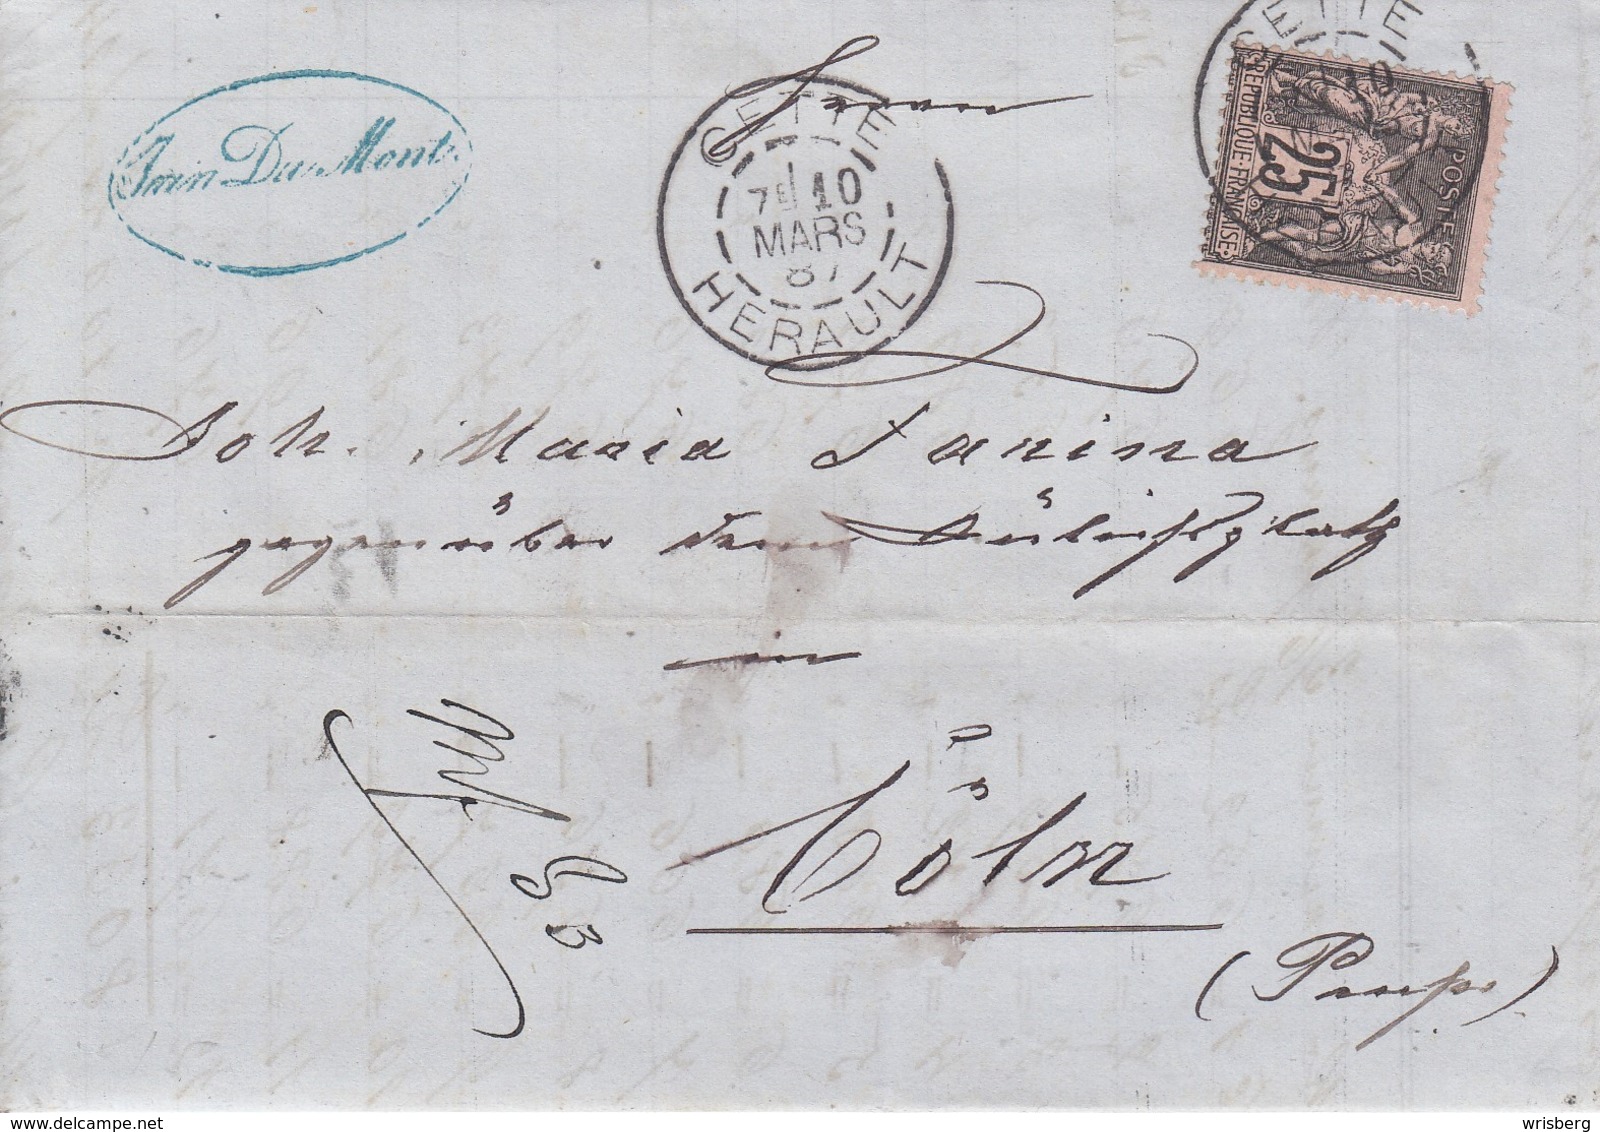 Du Mont
CETTE
7E 10
MARS
87
HERAULT
CETTE
10
REPUBLIQUE·FRANÇAISE
25
POSTE
Herrn
Joh. Maria Farina
gegenüber dem Jülichsplatz
in
Cöln
(Preuss.)
delcampe.net
wrisberg